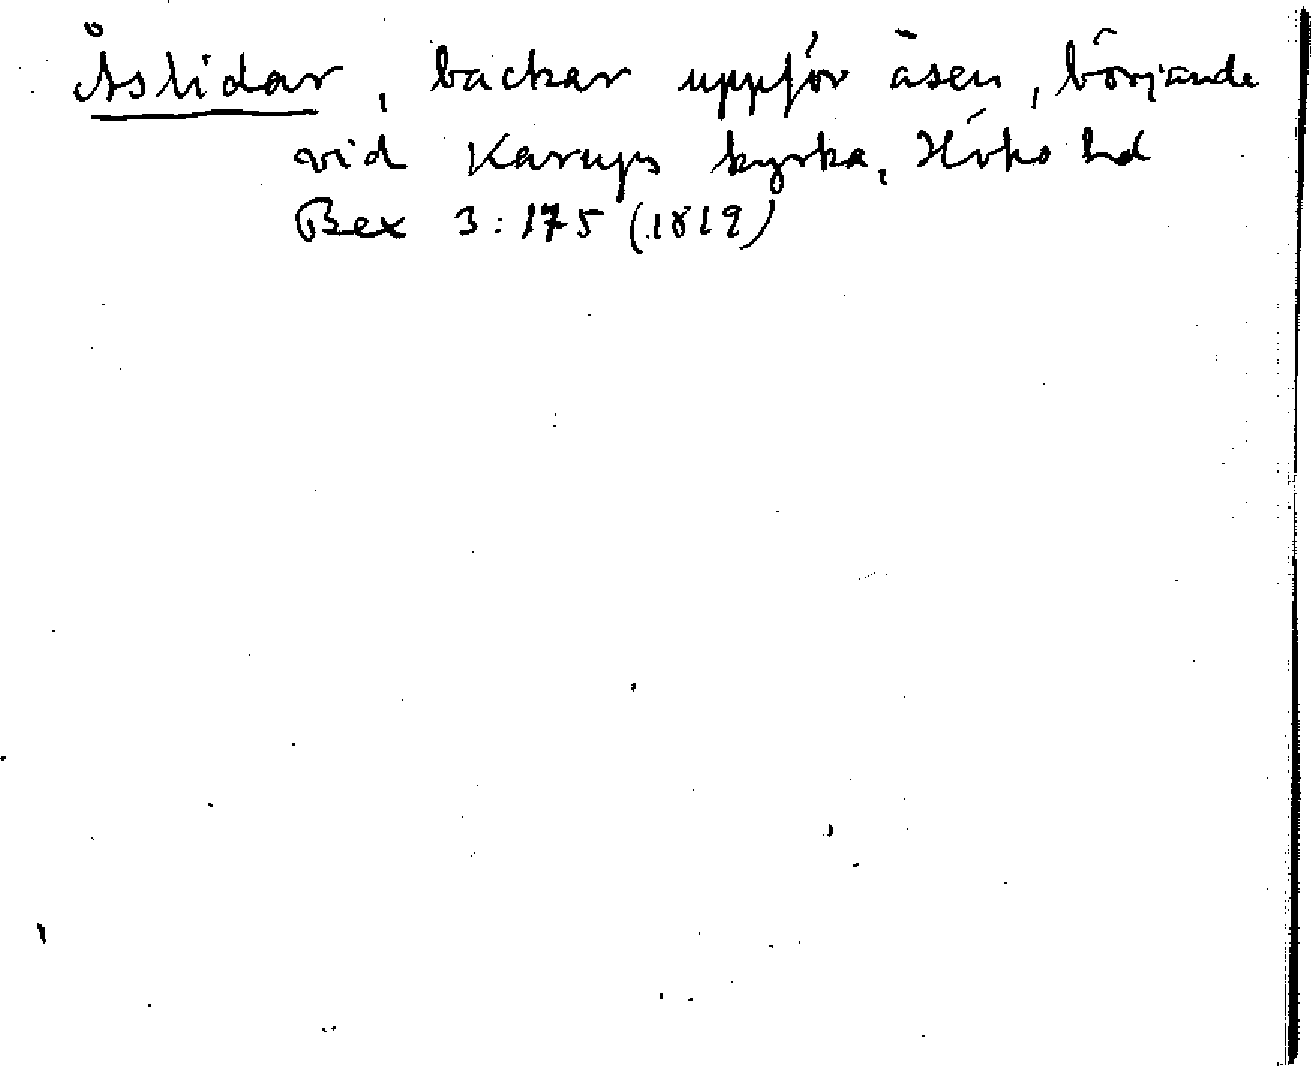 Åslidar, backar uppför åsen, började
vid Karups kyrka, Höks hd
Bex 3:175 (1819)